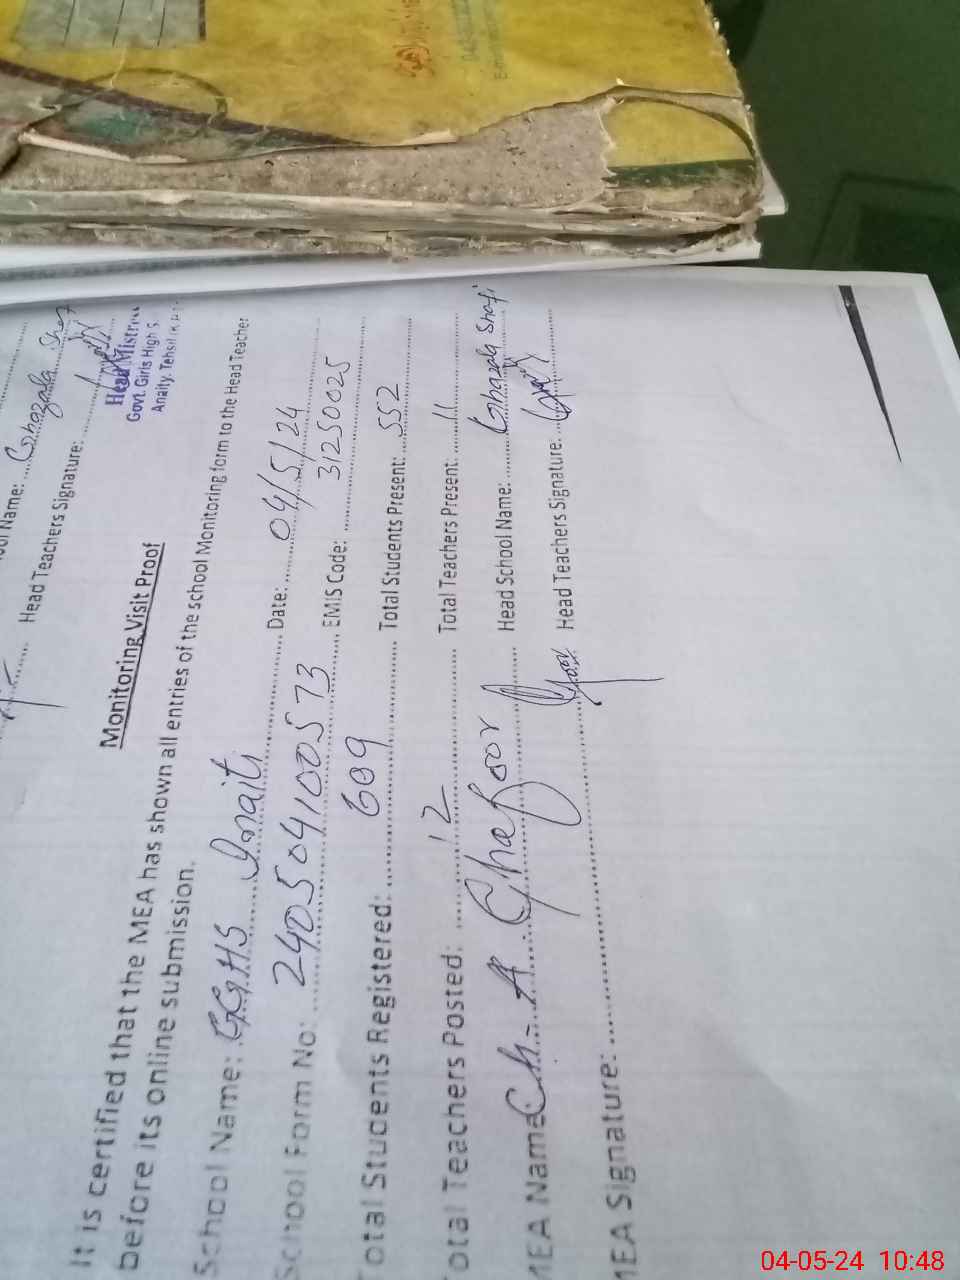 Name: Ghazala Shaf
Head Teachers Signature:
Head Mistress
Govt. Girls High S
Anaity. Tehsil
Monitoring Visit Proof
It is certified that the MEA has shown all entries of the school Monitoring form to the Head Teacher
before its online submission.
School Name: GGHS Inaiti Date: 04/5/24
School Form No: 240504100573 EMIS Code: 31250025
Total Students Registered: 609 Total Students Present: 552
Total Teachers Posted: 12 Total Teachers Present: 11
MEA Name Ch-A Ghafoor Head School Name: Ghazala Shafi
MEA Signature: Head Teachers Signature:
04-05-24 10:48